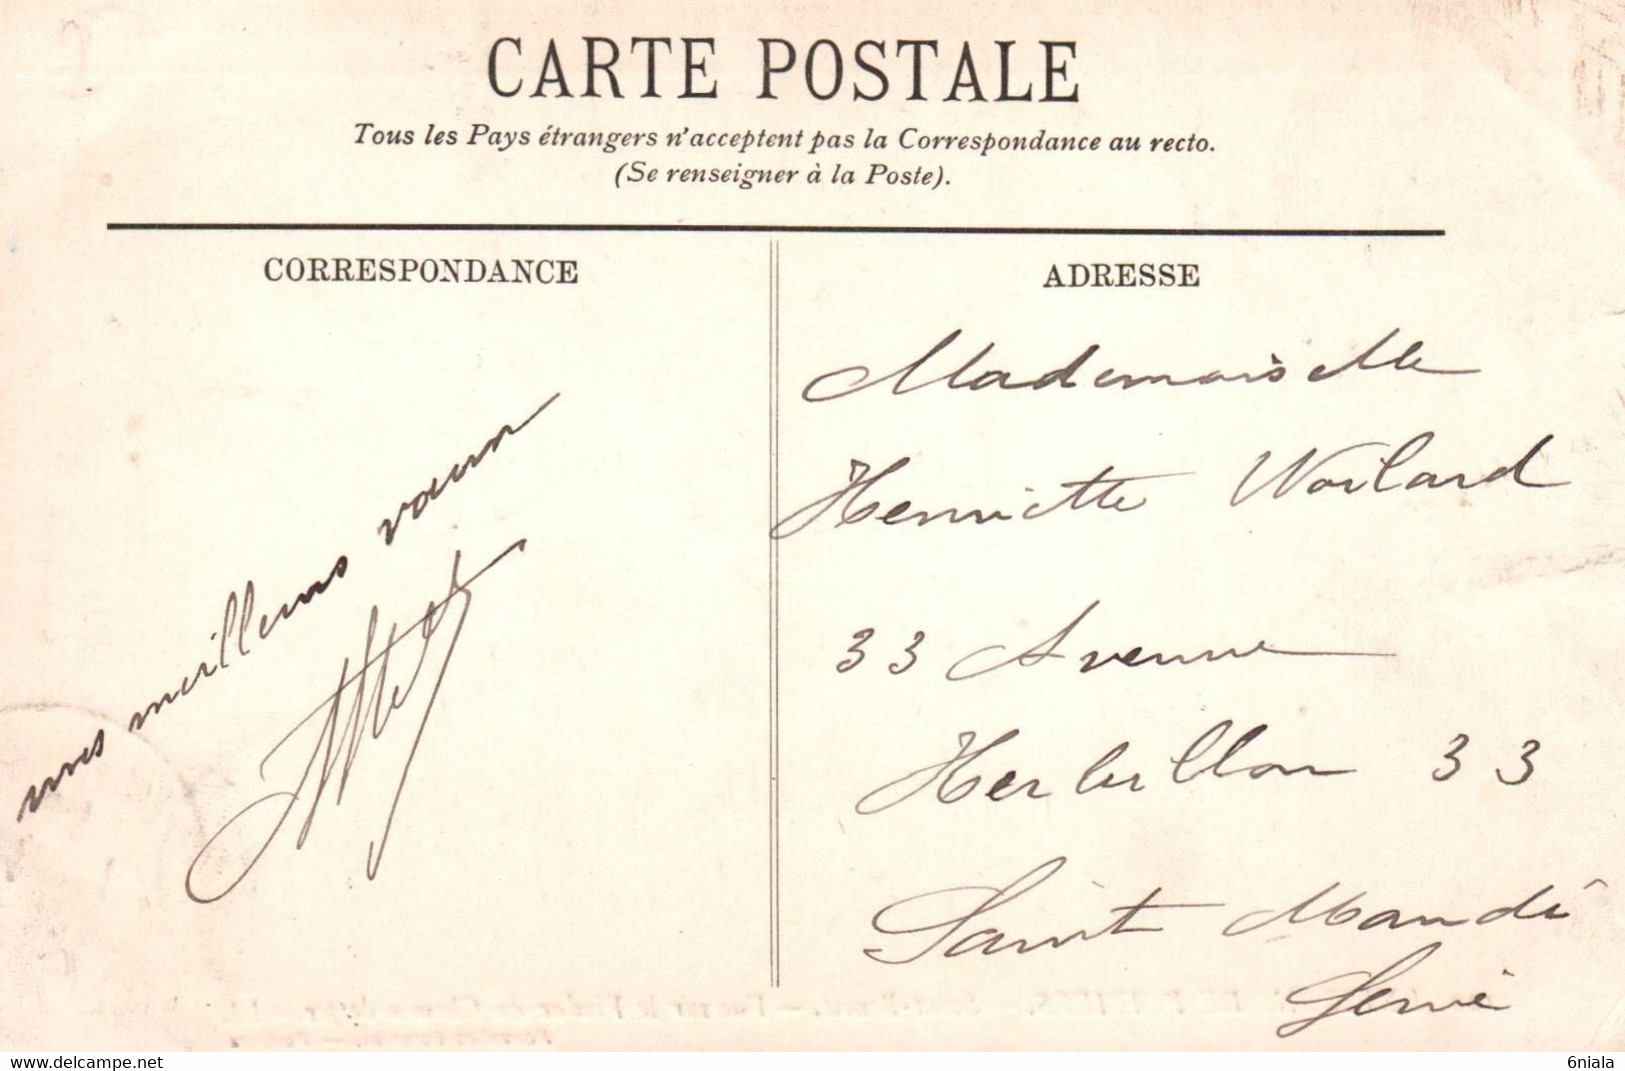 CARTE POSTALE
Tous les Pays étrangers n'acceptent pas la Correspondance au recto.
(Se renseigner à la Poste).
CORRESPONDANCE
mes meilleurs vœux
ADRESSE
Mademoiselle
Henriette Woilard
33 Avenue
Herbillon 33
Saint Mandé
Seine
6niala